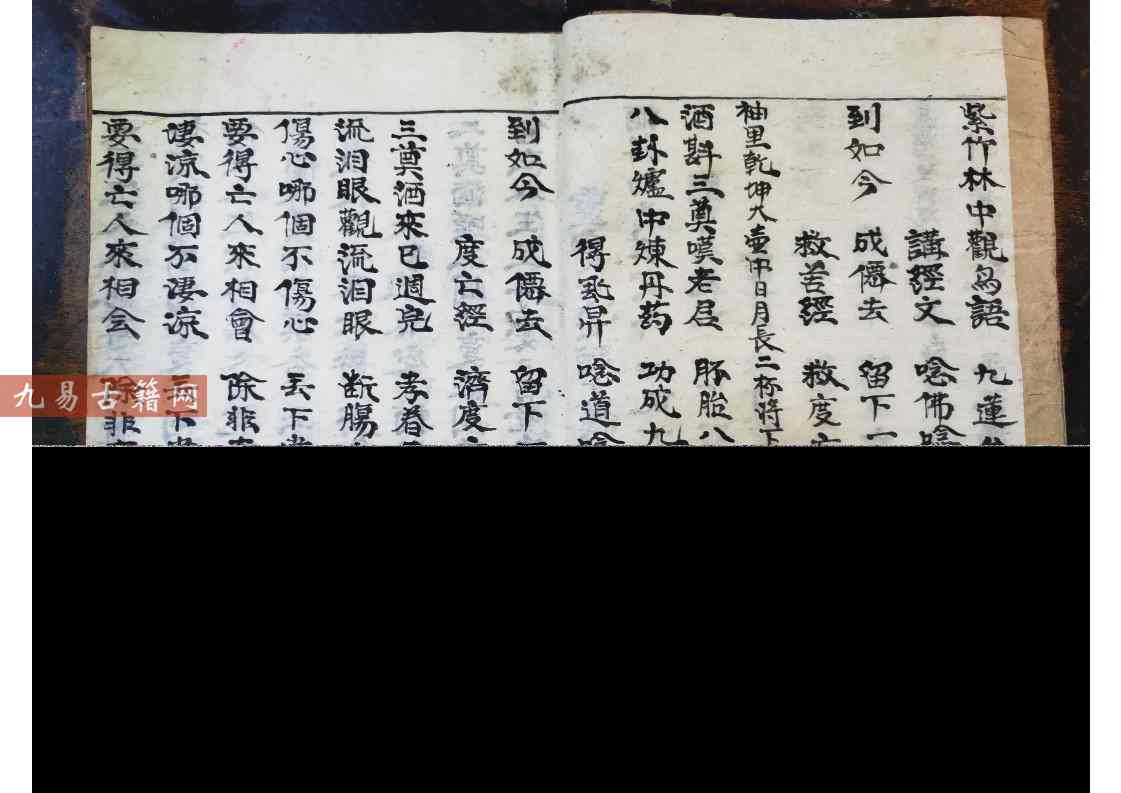 紫竹林中觀鳥語 九蓮
講經文 唸佛唸
到如今 成僊去 留下一
救苦經 救度亡
袖里乾坤大壺中日月長二杯將下
酒斟三奠嘆老君 胚胎八
八卦爐中煉丹药 功成九
得飛昇 唸道唸
到如今 成僊去 留下
度亡經 濟度亡
三奠酒來已週完 孝眷
流泪眼觀流泪眼 断腸
傷心哪個不傷心 丟下
要得亡人來相會 除非
淒涼哪個不淒涼 丟下
要得亡人來相会 除非
九易古籍网